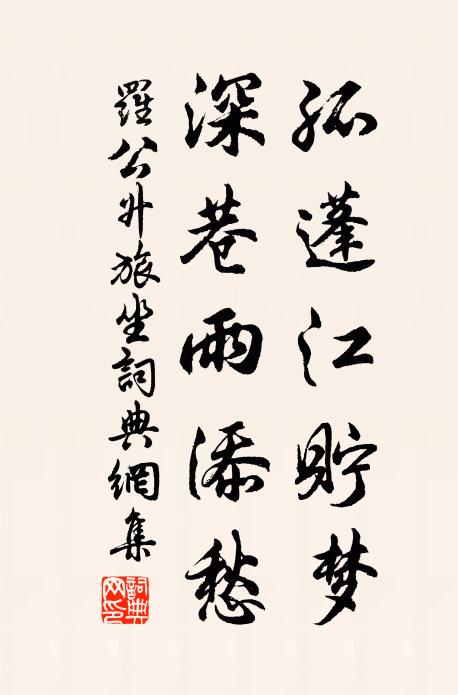 孤蓬江貯梦
深巷雨添愁
羅公升旅坐詞典網集
詞典网印